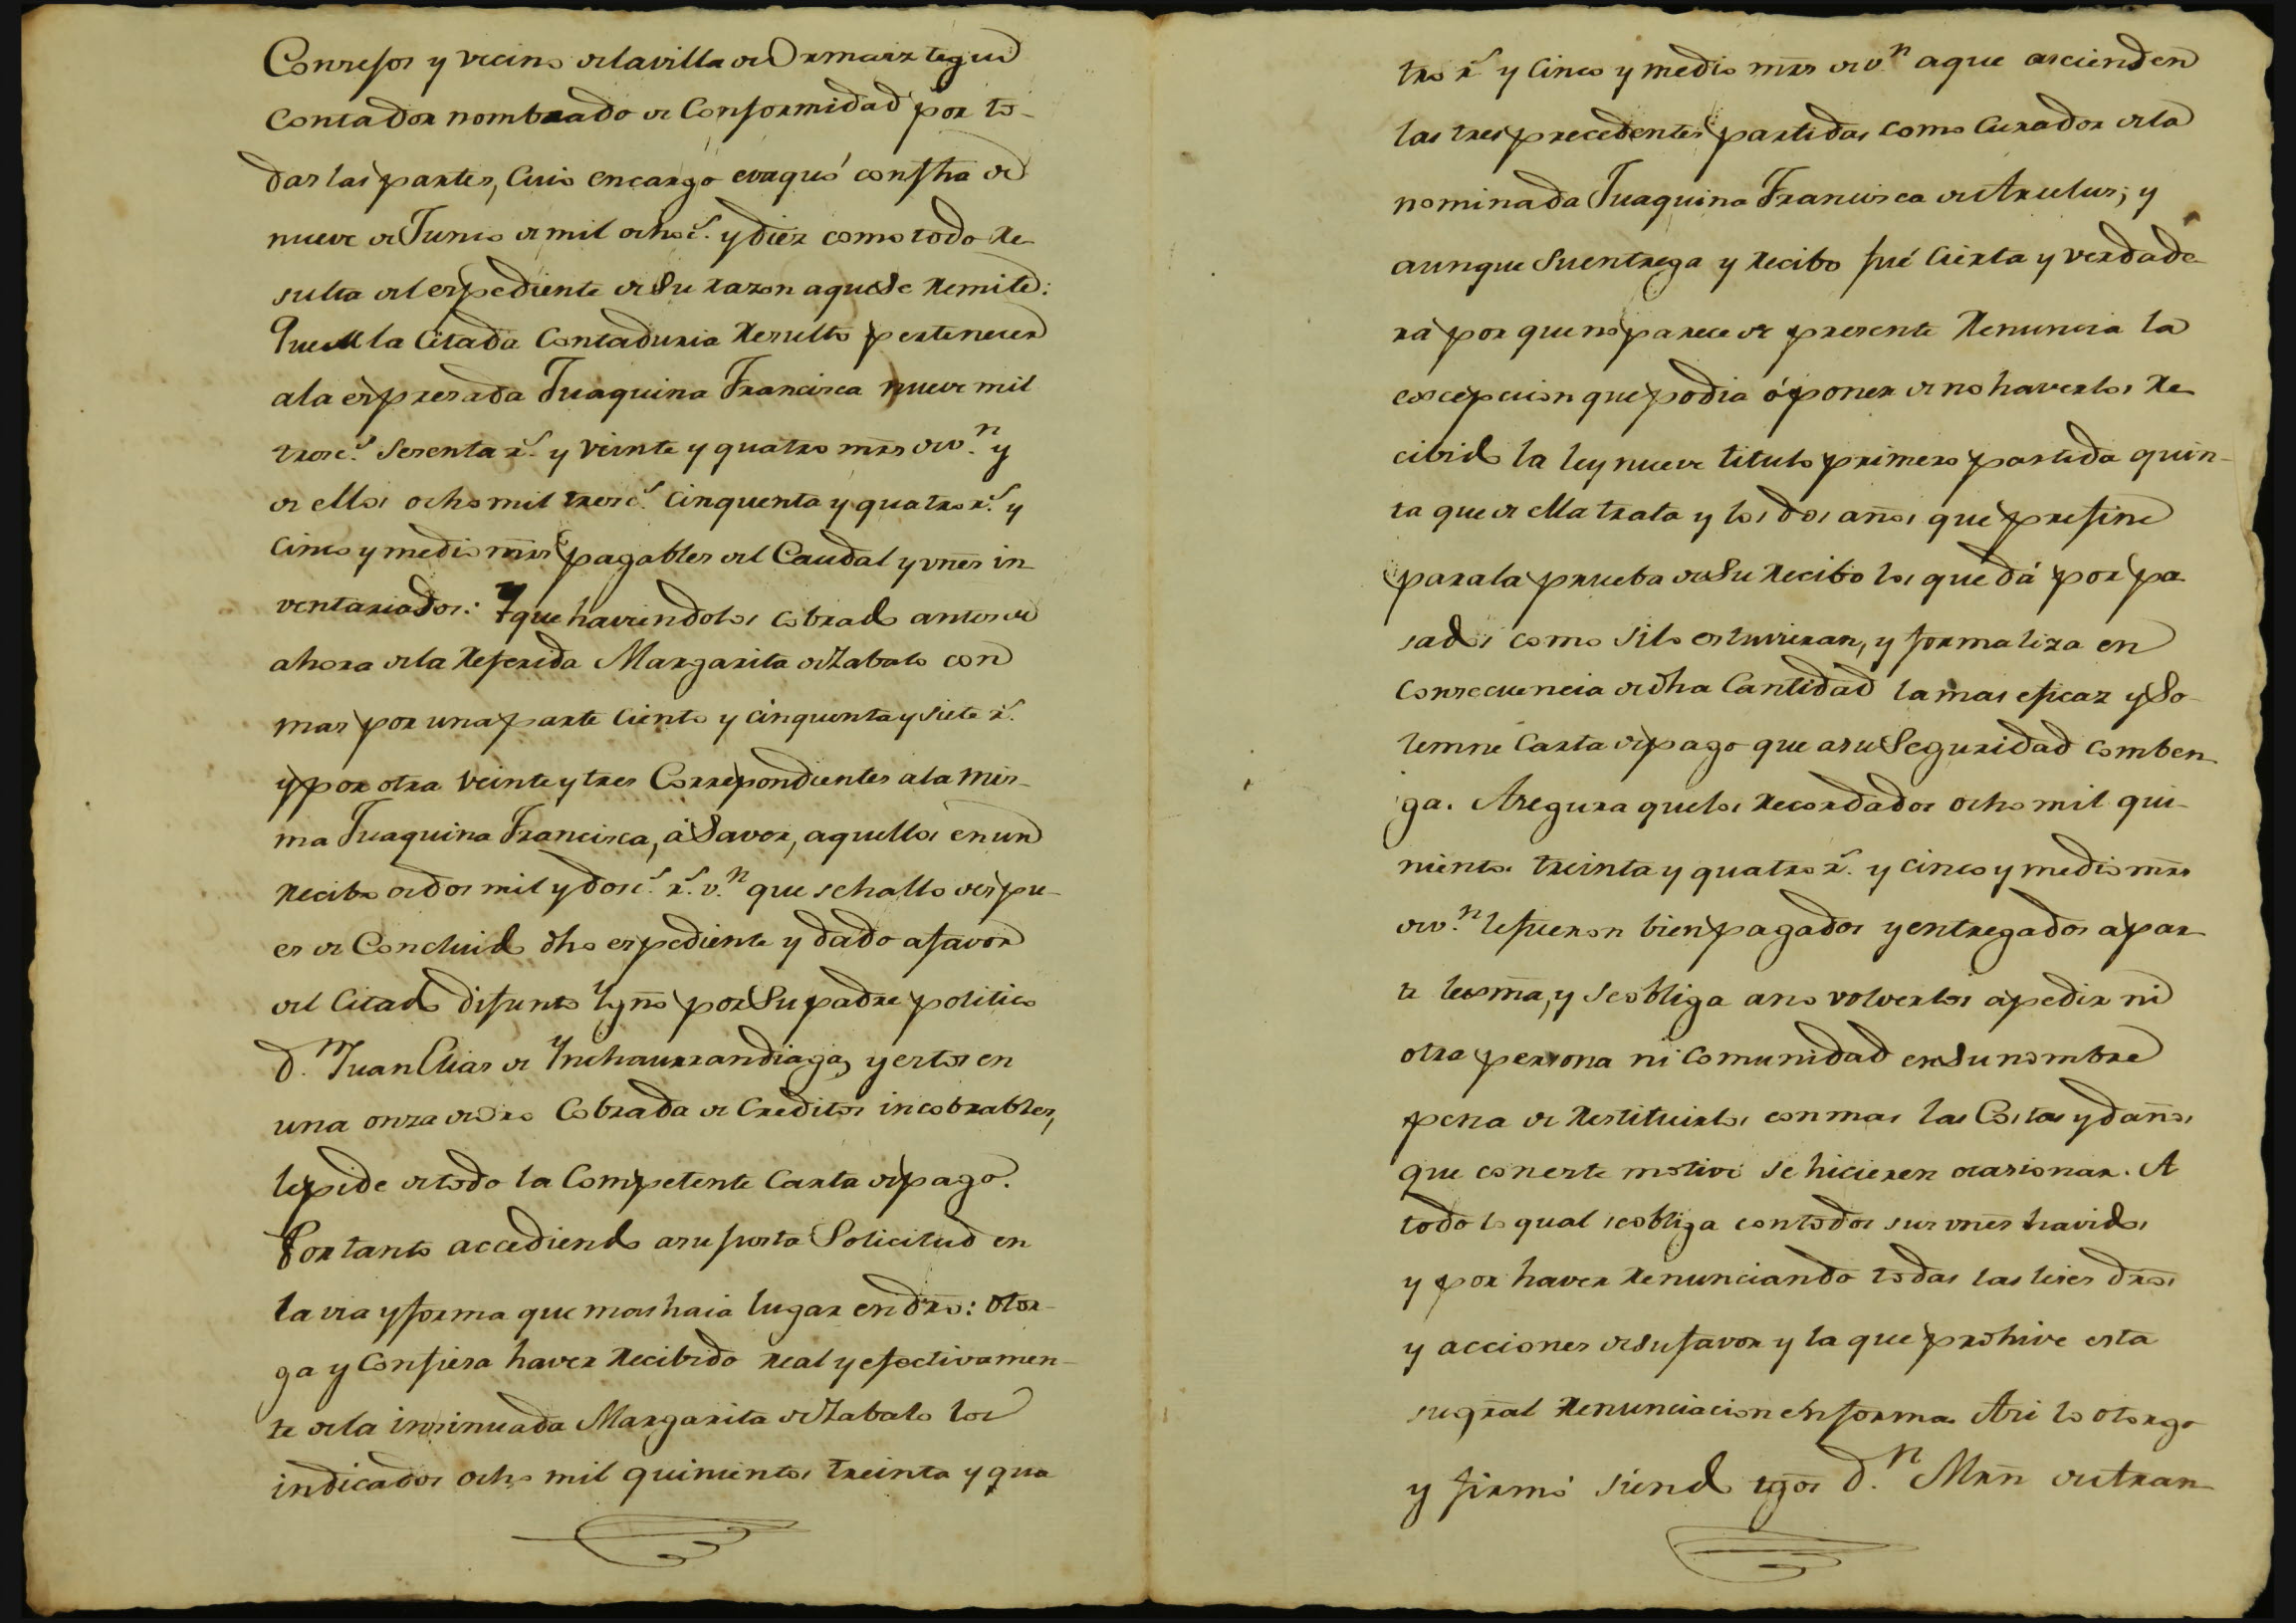 Confesor y vecino de la villa de Ormaiztegui
Contador nombrado de Conformidad por to-
das las partes, cuio encargo evaquó con fha de
nueve de Junio de mil ochoc.s y diez como todo re
sulta del expediente de su razon a que se remite:
Que en la citada Contaduria resulto pertenecer
a la expresada Juaquina Francisca nueve mil
tresc.s sesenta r.s y veinte y quatro mrs de v.n y
de ellos ocho mil tresc.s cinquenta y quatro r.s y
cinco y medio mrs pagables del Caudal y vnes in
ventariados: Y que haviendolos cobrado antes de
ahora de la referida Margarita de Zabalo con
mas por una parte ciento y cinquenta y siete r.s
y por otra veinte y tres Correspondientes a la mis-
ma Juaquina Francisca, á Saver, aquellos en un
recibo de dos mil y dosc.s r.s v.n que se hallo despu-
es de Concluido dho expediente y dado a favor
del Citado difunto Ygno por Su padre politico
d.n Juan Elias de Ynchaurrandiaga, y estos en
una onza de oro Cobrada de Creditos incobrables,
le pide de todo la Competente Carta de pago.
Por tanto accediendo a su justa Solicitud en
la via y forma que mas haia lugar en dro: otor-
ga y Confiesa haver recibido real y efectivamen-
te de la insinuada Margarita de Zabalo los
indicados ocho mil quinientos treinta y qua
tro r.s y cinco y medio mrs de v.n a que ascienden
las tres precedentes partidas como Curador de la
nominada Juaquina Francisca de Aruelus; y
aunque su entrega y recibo fué cierta y verdade
ra por que no parece de presente renuncia la
excepcion que podia óponer de no haverlos re
cibido la ley nueve titulo primero partida quin-
ta que de ella trata y los dos años que prefine
para la prueba de su recibo los que dá por pa
sados como si lo estuvieran, y formaliza en
consecuencia de dha Cantidad la mas eficaz y So-
lemne Carta de pago que a su Seguridad comben
ga. Asegura que los recordados ocho mil qui-
nientos treinta y quatro r.s y cinco y medio mrs
de v.n le fueron bien pagados y entregados a par
te lexma, y se obliga a no volverlos a pedir ni
otra persona ni comunidad en su nombre
pena de restituirlos con mas las Costas y daños
que con este motivo se hicieren ocasionar. A
todo lo qual se obliga con todos sus vnes havidos
y por haver renunciando todas las leies dros
y acciones de su favor y la que prohive esta
su gral renunciacion en forma. Asi lo otorgo
y firmó siendo tgos d.n Mrn de Aran